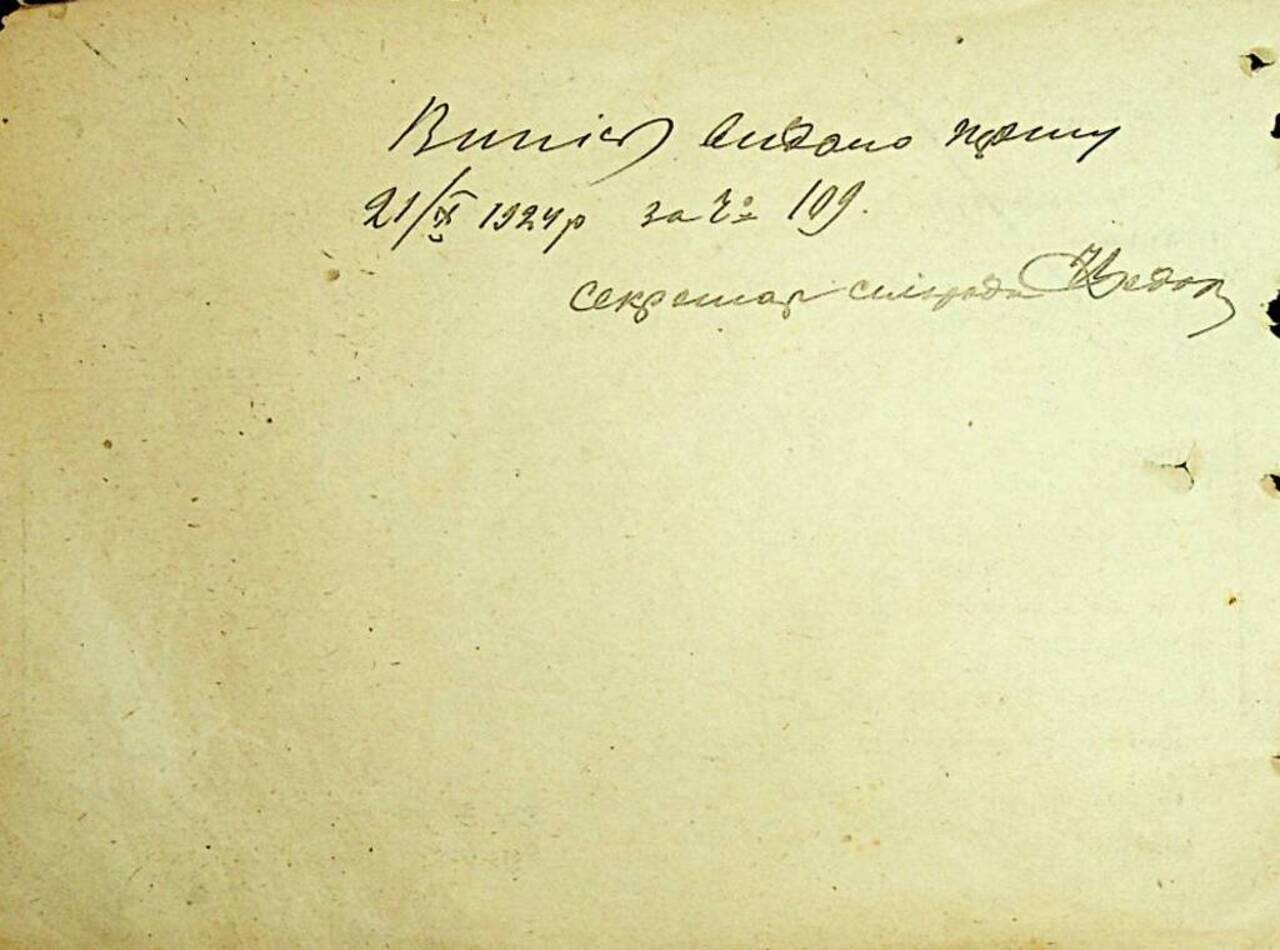 Випис видано
21/X 1924 р за № 109.
Секретар сільради